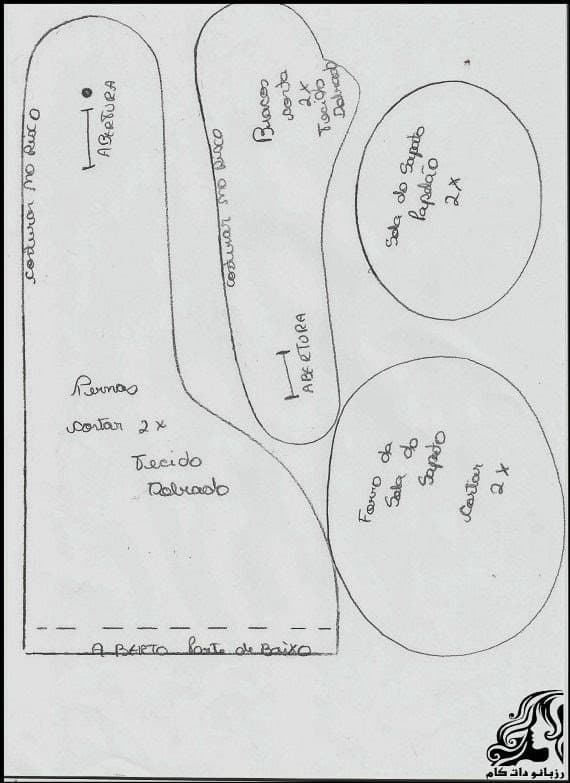 costurar no risco
ABERTURA
Pernas
cortar 2x
Tecido
Dobrado
ABERTO Parte de Baixo
costurar no risco
Braços
corta
2x
Tecido
Dobrado
ABERTURA
Sola do Sapato
Papelão
2x
Forro da
Sola do
Sapato
Cortar
2x
رزبانو دات کام